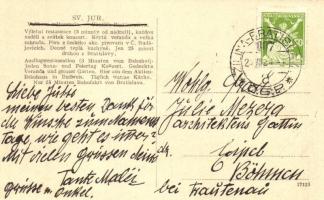 SV. JUR.
Výletní restaurace (3 minuty od nádraží), každou
neděli a svátek koncert. Krytá veranda a velká
zahrada. Pivo z českého akc. pivovaru v Č. Budě-
jovicích. Denně teplá kuchyně. Jen 25 minut
dráhou z Bratislavy.
Ausflugsrestauration (3 Minuten vom Bahnhof)
jeden Sonn- und Feiertag Konzert. Gedeckte
Veranda und grosser Garten. Bier aus dem Aktien-
Bräuhaus in Budweis. Täglich warme Küche.
Nur 25 Minuten Bahnfahrt von Bratislava.
Liebe Julči
meinen besten Dank für
die Wünsche zum Namens
tage, wie geht es immer?
Mit vielen Grüssen deine
Tante Malči
Grüsse v. Onkel.
Wohlg.
Julie Mezera
Architektens Gattin
Eipel
Böhmen
bei Trautenau
17123